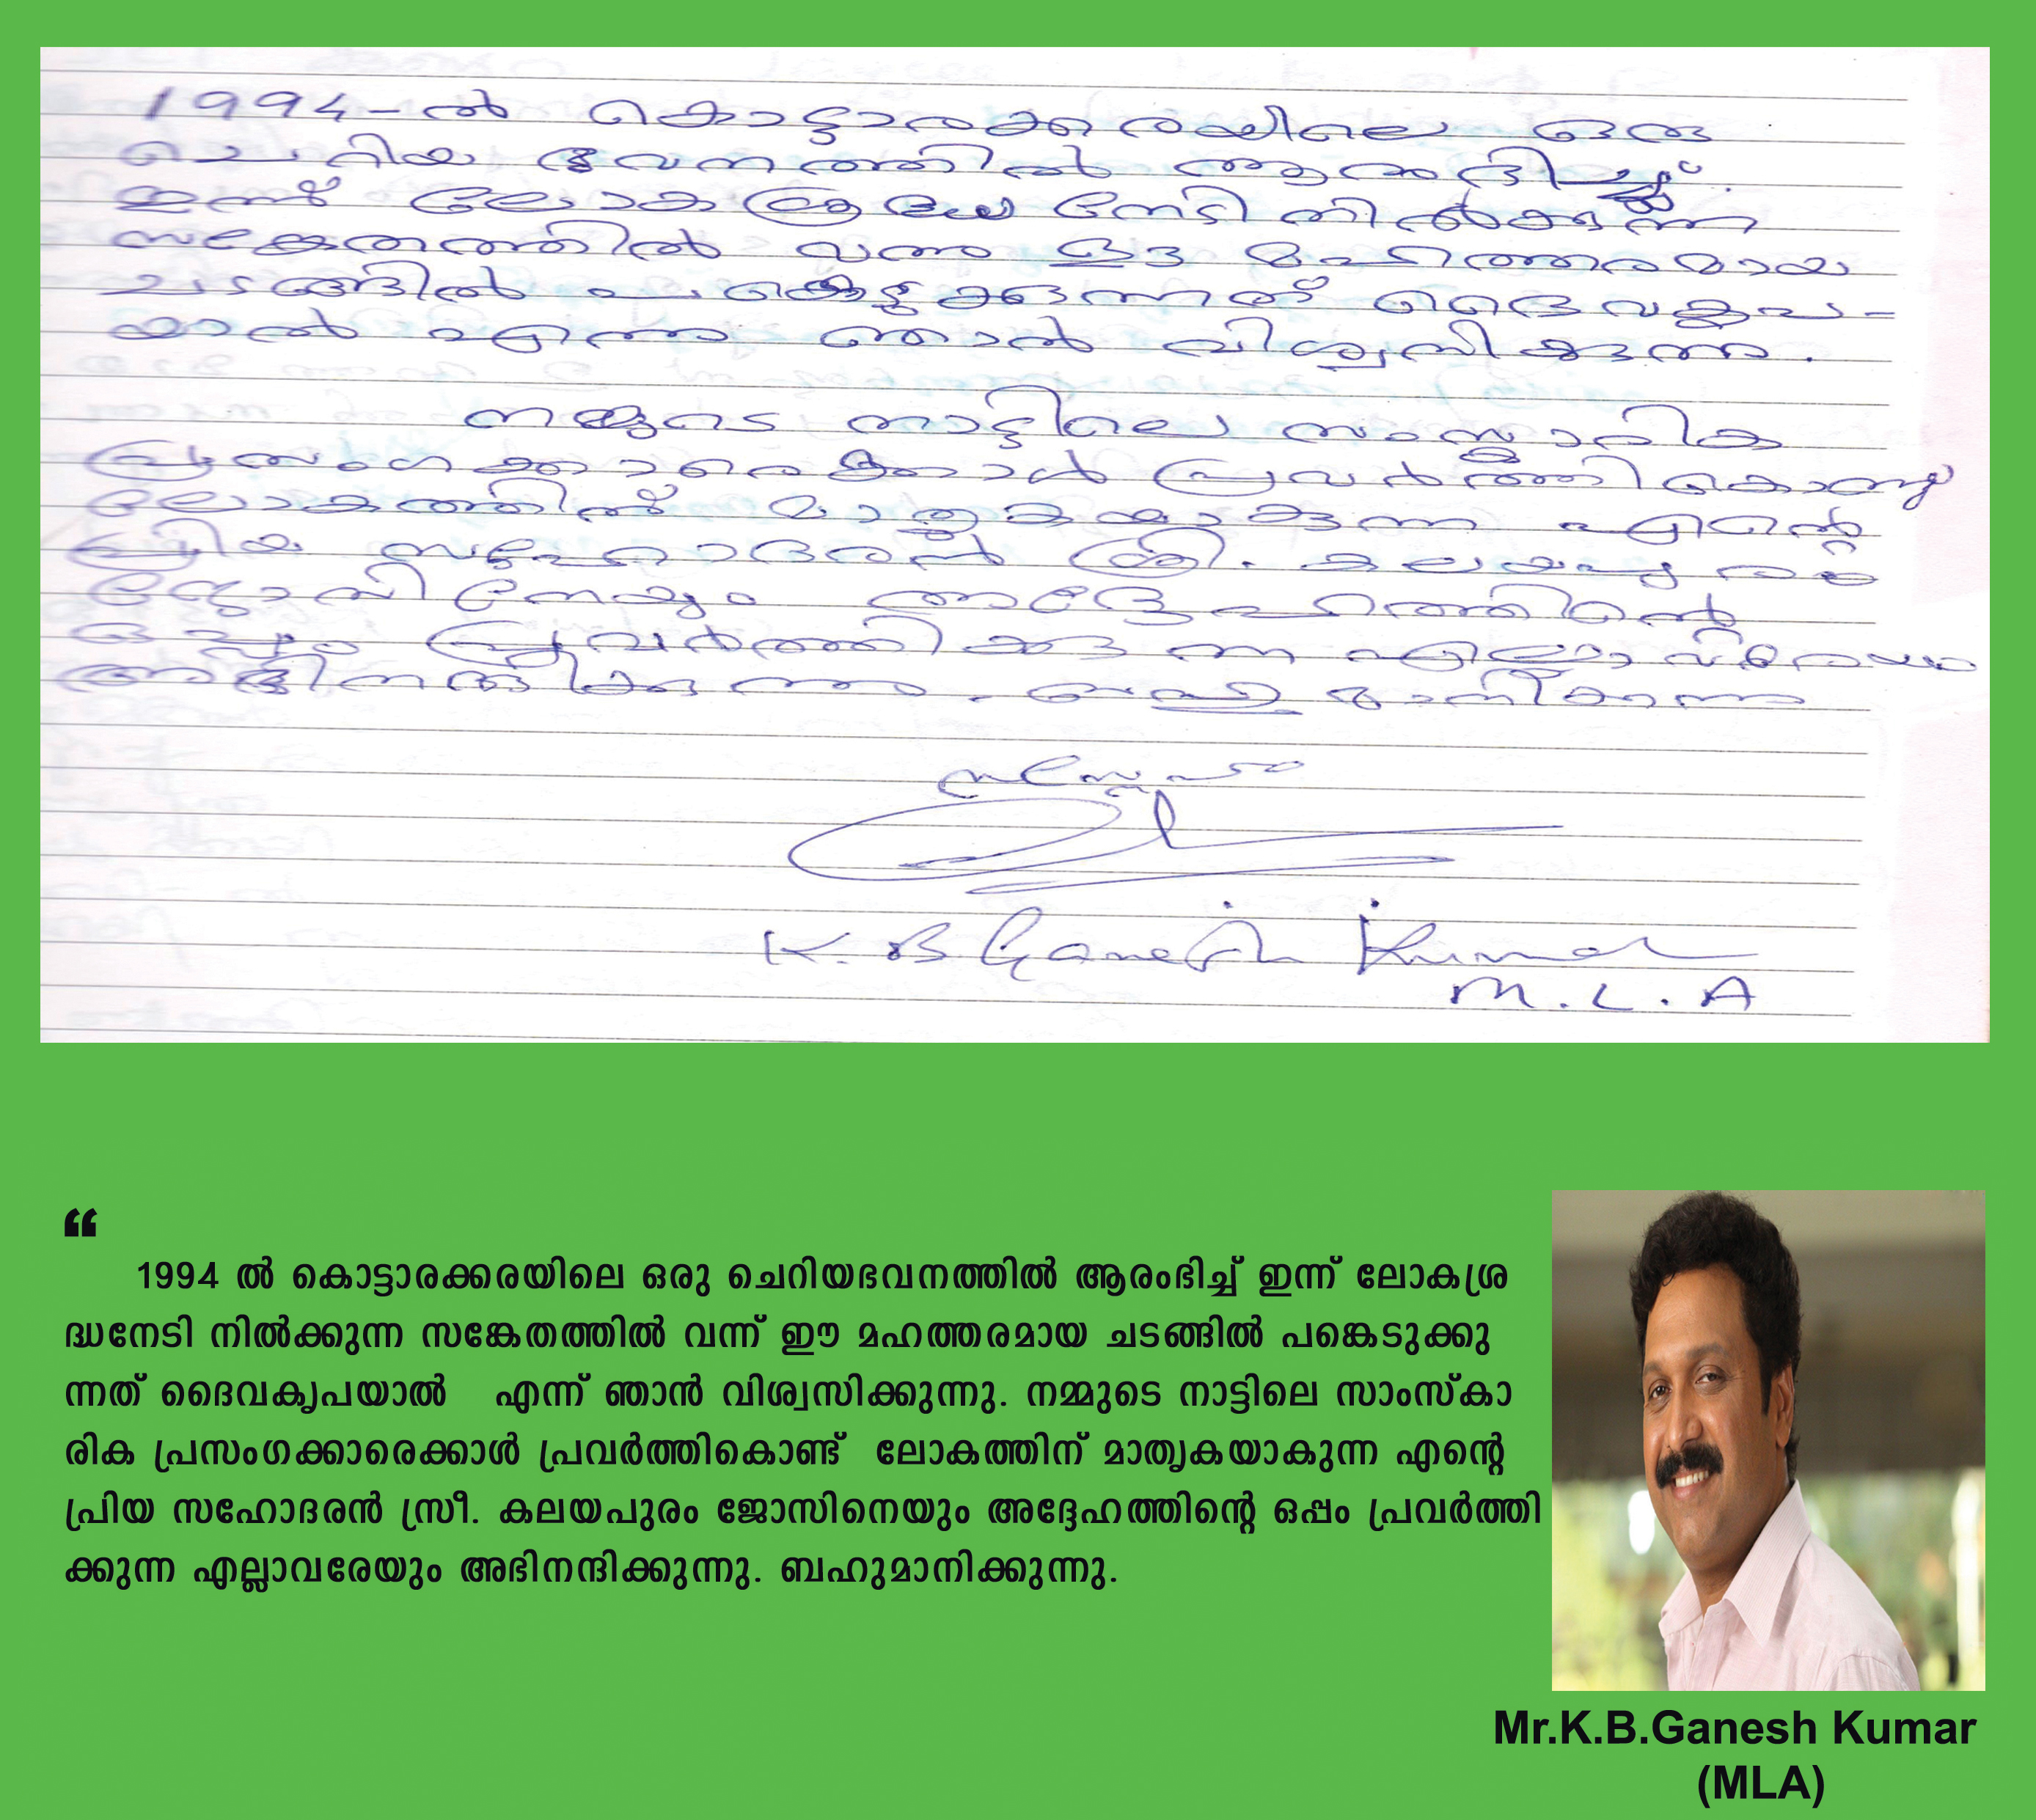 1994-ൽ കൊട്ടാരക്കരയിലെ ഒരു
ചെറിയ ഭവനത്തിൽ ആരംഭിച്ച്
ഇന്ന് ലോകശ്രദ്ധ നേടി നിൽക്കുന്ന
സങ്കേതത്തിൽ വന്നു ഈ മഹത്തരമായ
ചടങ്ങിൽ പങ്കെടുക്കുന്നത് ദൈവകൃപ-
യാൽ എന്നു ഞാൻ വിശ്വസിക്കുന്നു.
നമ്മുടെ നാട്ടിലെ സാംസ്കാരിക
പ്രസംഗക്കാരെക്കാൾ പ്രവർത്തികൊണ്ടു
ലോകത്തിന് മാതൃകയാകുന്ന എന്റെ
പ്രിയ സഹോദരൻ ശ്രീ. കലയപുരം
ജോസിനേയും അദ്ദേഹത്തിന്റെ
ഒപ്പം പ്രവർത്തിക്കുന്ന എല്ലാവരേയും
അഭിനന്ദിക്കുന്നു. ബഹുമാനിക്കുന്നു
സസ്നേഹം
K. B Ganesh Kumar
M.L.A
“
1994 ൽ കൊട്ടാരക്കരയിലെ ഒരു ചെറിയഭവനത്തിൽ ആരംഭിച്ച് ഇന്ന് ലോകശ്ര
ദ്ധനേടി നിൽക്കുന്ന സങ്കേതത്തിൽ വന്ന് ഈ മഹത്തരമായ ചടങ്ങിൽ പങ്കെടുക്കു
ന്നത് ദൈവകൃപയാൽ എന്ന് ഞാൻ വിശ്വസിക്കുന്നു. നമ്മുടെ നാട്ടിലെ സാംസ്കാ
രിക പ്രസംഗക്കാരെക്കാൾ പ്രവർത്തികൊണ്ട് ലോകത്തിന് മാതൃകയാകുന്ന എന്റെ
പ്രിയ സഹോദരൻ സ്രീ. കലയപുരം ജോസിനെയും അദ്ദേഹത്തിന്റെ ഒപ്പം പ്രവർത്തി
ക്കുന്ന എല്ലാവരേയും അഭിനന്ദിക്കുന്നു. ബഹുമാനിക്കുന്നു.
Mr.K.B.Ganesh Kumar
(MLA)